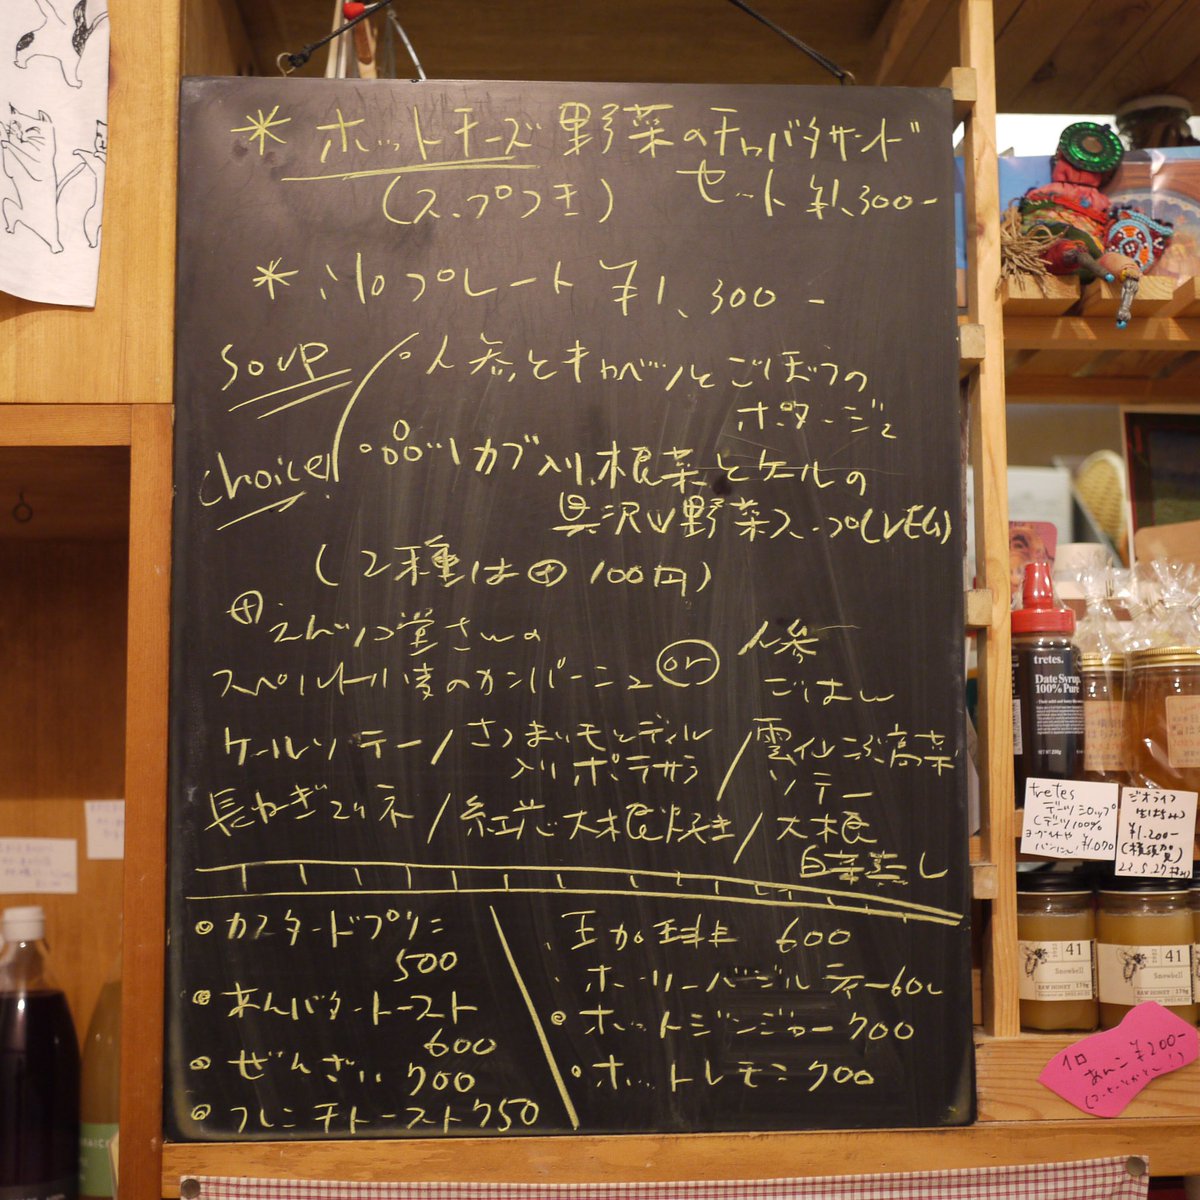 * ホットチーズ野菜のチャバタサンド
(スープつき) セット ¥1,300-
* プレート ¥1,300-
soup
choice!
○人参とキャベツとごぼうの
ポタージュ
カブ入り根菜とケールの
具沢山野菜スープ(VEG)
(2種は⊕100円)
⊕
堂さんの
スペルト小麦のカンパーニュ or 人参
ごはん
ケールソテー/さつまいもとディル
入りポテサラ/雲仙こぶ高菜
ソテー
長ねぎマリネ/紅芯大根焼き/大根
白菜蒸し
●カスタードプリン
500
●あんバタートースト
600
●ぜんざい 700
●フレンチトースト 750
珈琲 600
ホーリーバジルティー 600
●ホットジンジャー 700
●ホットレモン 700
tretes.
Date Syrup
100% Pure
tretes
デーツシロップ
(デーツ100%
ヨーグルトや
パンに。 ¥1,070
¥1,200-
(横須賀)
41
Snowbell
RAW HONEY 170g
41
Snowbell
RAW HONEY 170g
1コ
あんこ ¥200-